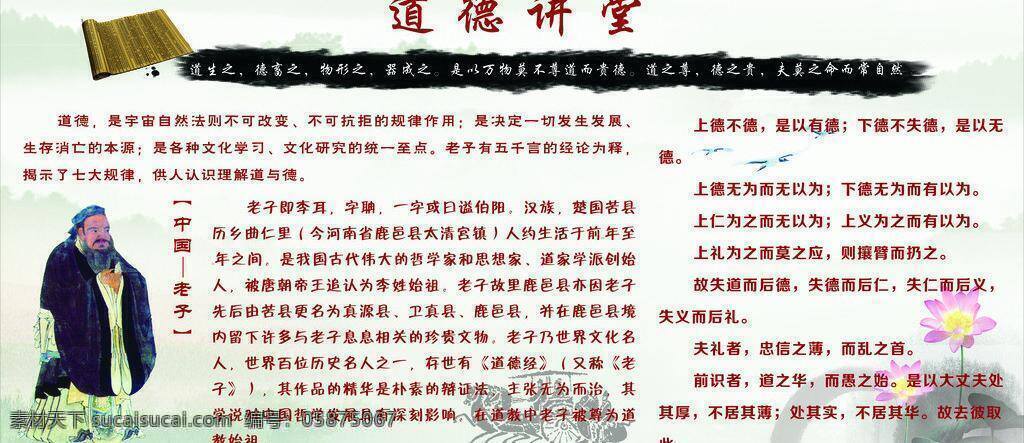 道德讲堂
道生之，德畜之，物形之，器成之。是以万物莫不尊道而贵德。道之尊，德之贵，夫莫之命而常自然
道德，是宇宙自然法则不可改变、不可抗拒的规律作用；是决定一切发生发展、
生存消亡的本源；是各种文化学习、文化研究的统一至点。老子有五千言的经论为释，
揭示了七大规律，供人认识理解道与德。
【中国—老子】
老子即李耳，字聃，一字或曰谥伯阳。汉族，楚国苦县
历乡曲仁里（今河南省鹿邑县太清宫镇）人约生活于前年至
年之间。是我国古代伟大的哲学家和思想家、道家学派创始
人，被唐朝帝王追认为李姓始祖。老子故里鹿邑县亦因老子
先后由苦县更名为真源县、卫真县、鹿邑县，并在鹿邑县境
内留下许多与老子息息相关的珍贵文物。老子乃世界文化名
人，世界百位历史名人之一，存世有《道德经》（又称《老
子》），其作品的精华是朴素的辩证法，主张无为而治，其
学说对中国哲学发展具有深刻影响。在道教中老子被尊为道
教始祖
上德不德，是以有德；下德不失德，是以无
德。
上德无为而无以为；下德无为而有以为。
上仁为之而无以为；上义为之而有以为。
上礼为之而莫之应，则攘臂而扔之。
故失道而后德，失德而后仁，失仁而后义，
失义而后礼。
夫礼者，忠信之薄，而乱之首。
前识者，道之华，而愚之始。是以大丈夫处
其厚，不居其薄；处其实，不居其华。故去彼取
此
素材天下 sucaisucai.com 编号：05875067